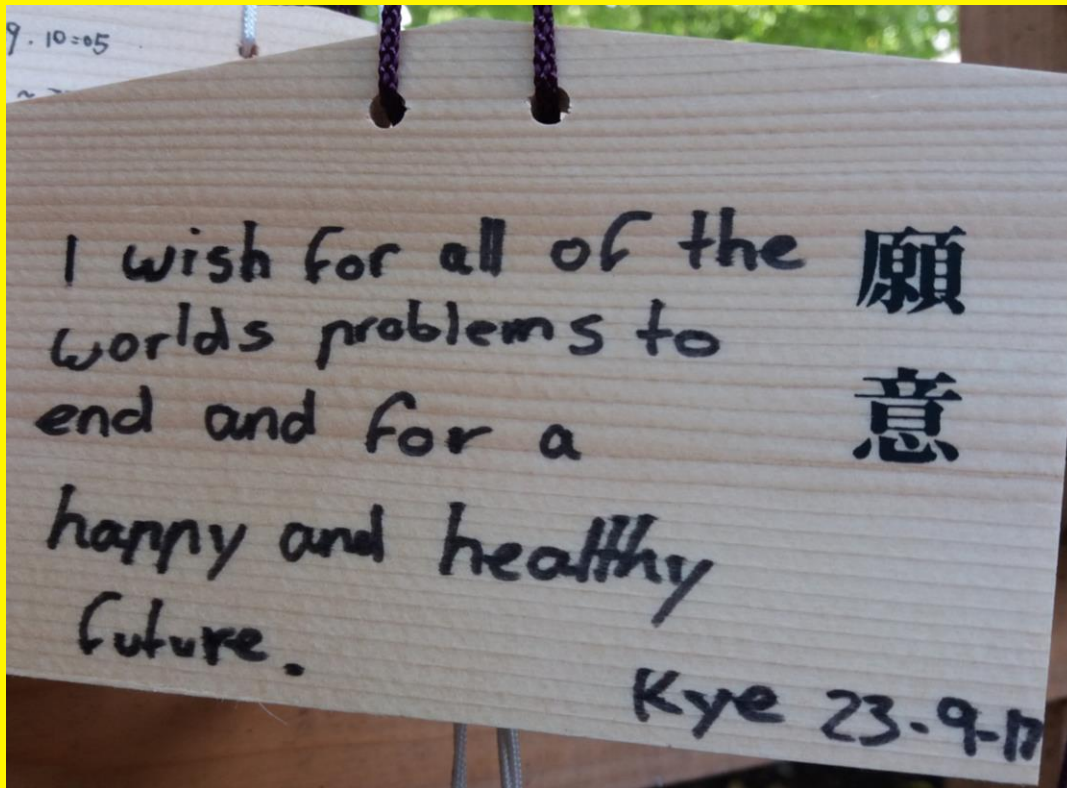 9.10=05
I wish for all of the
worlds problems to
end and for a
happy and healthy
future.
Kye 23-9-17
願
意